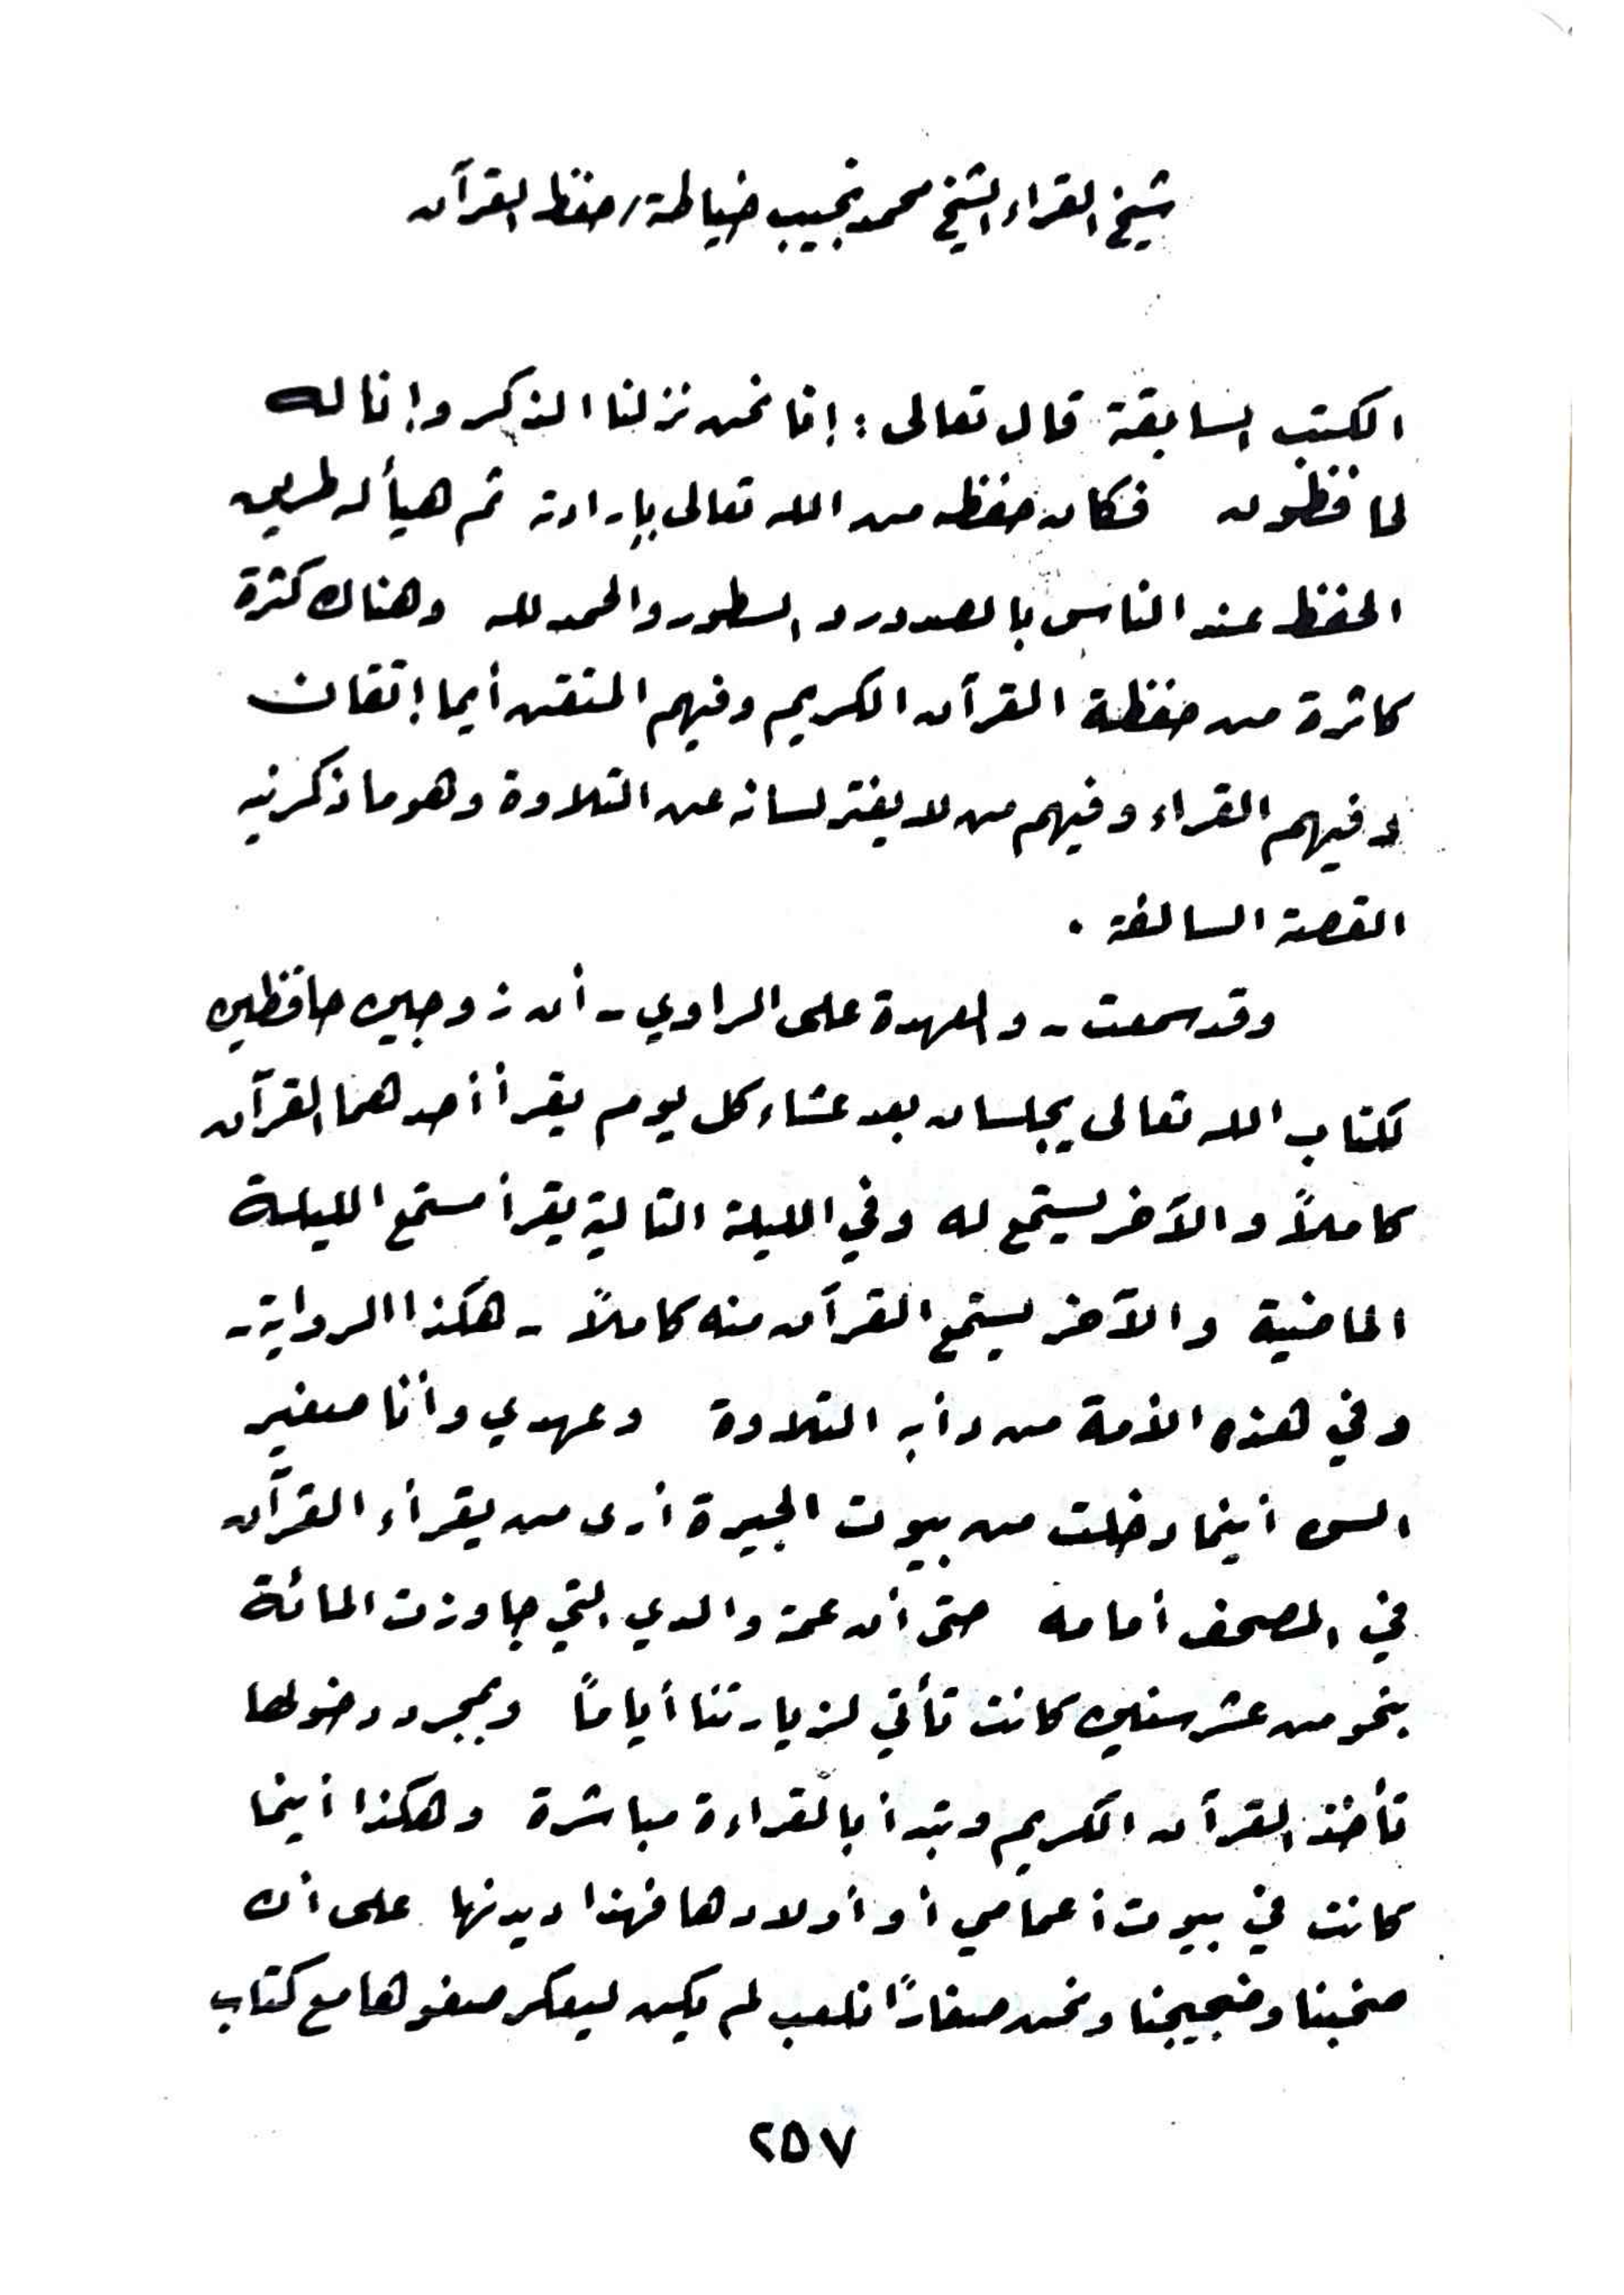 شيخ القراء الشيخ محمد نجيب خياطة/ حفظ القرآن
الكتب السابقة قال تعالى : إنا نحن نزلنا الذكر وإنا له
لحافظون فكان حفظه من الله تعالى بإرادته ثم هيأ له طريق
الحفظ عند الناس بالصدور والسطور والحمد لله وهناك كثرة
كاثرة من حفظة القرآن الكريم وفيهم المتقن أيما إتقان
وفيهم القراء وفيهم من لا يفتر لسانه عن التلاوة وهو ما ذكرنيه
القصة السالفة .
وقد سمعت - والعهدة على الراوي - أن زوجين حافظين
لكتاب الله تعالى يجلسان بعد عشاء كل يوم يقرأ أحدهما القرآن
كاملاً والآخر يستمع له وفي الليلة التالية يقرأ مستمع الليلة
الماضية والآخر يستمع القرآن منه كاملاً - هكذا الرواية -
وفي هذه الأمة من دأبه التلاوة وعهدي وأنا صغير
السن أينما دخلت من بيوت الجيرة أرى من يقرأ القرآن
في المصحف أمامه حتى أن عمة والدي التي جاوزت المائة
بنحو من عشر سنين كانت تأتي لزيارتنا أياماً وبمجرد دخولها
تأخذ القرآن الكريم وتبدأ بالقراءة مباشرة وهكذا أينما
كانت في بيوت أعمامي أو أولادها فهذا ديدنها على أن
صخبنا وضجيجنا ونحن صغاراً نلعب لم يكن ليعكر صفوها مع كتاب
٢٥٧